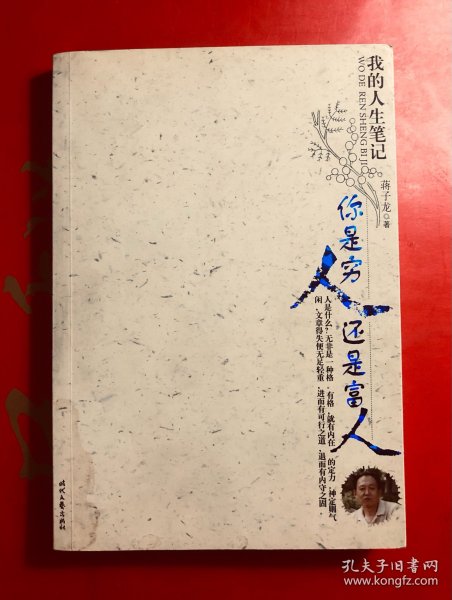 我的人生笔记
WO DE REN SHENG BI JI
蒋子龙 著
你是穷人
还是富人
人是什么?无非是一种格,有格,就有内在的定力,神定则气
闲,文章得失便无足轻重,进而有可行之道,退而有内守之固。
时代文艺出版社
孔夫子旧书网
www.kongfz.com